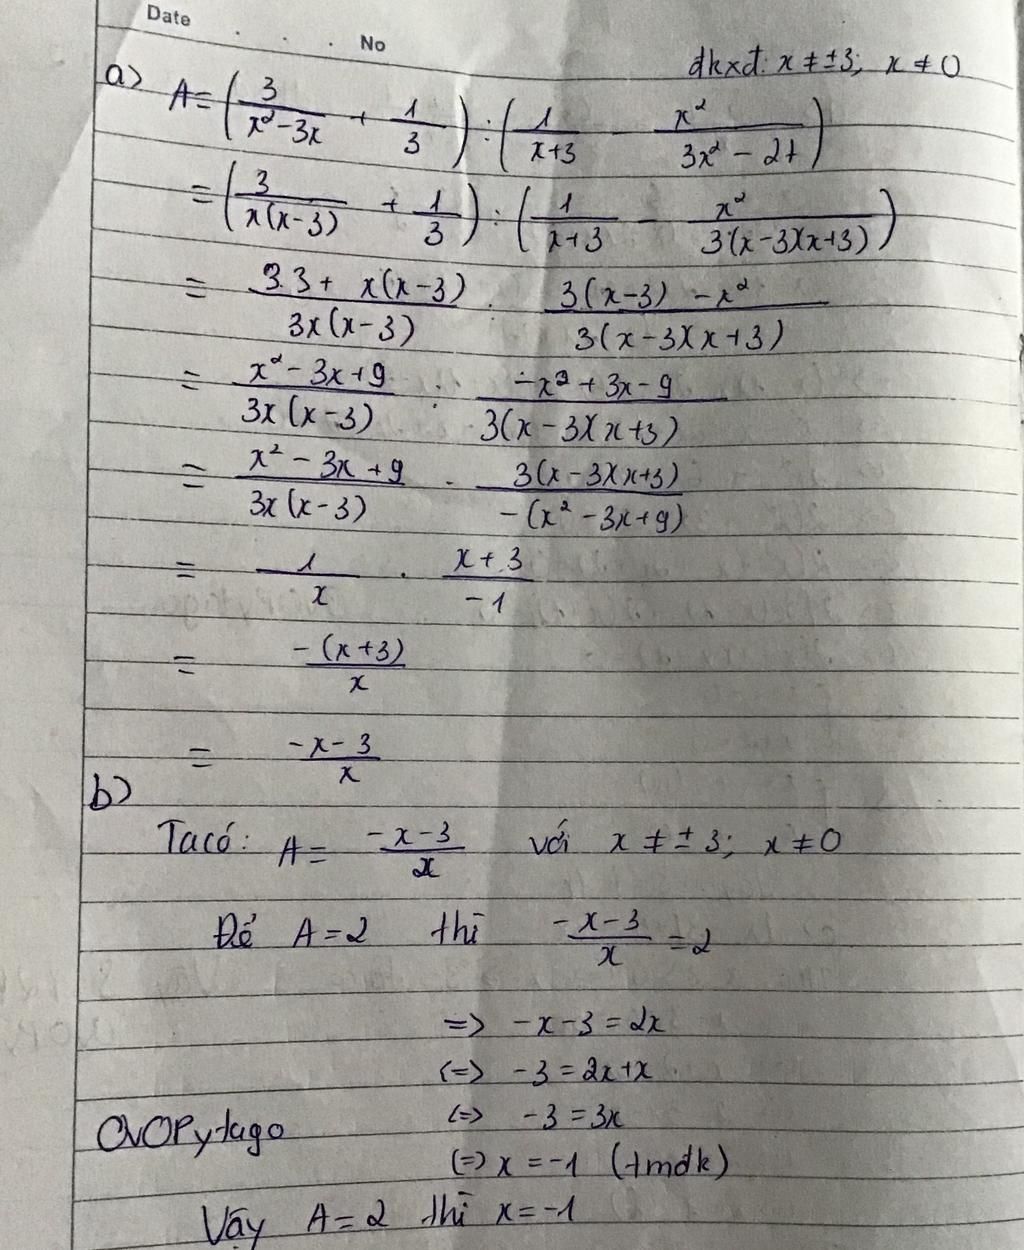 Date . . . No
đkxđ: x ≠ ±3; x ≠ 0
a) A = (3/(x² - 3x) + 1/3) : (1/(x+3) - x²/(3x² - 27))
= (3/(x(x-3)) + 1/3) : (1/(x+3) - x²/(3(x-3)(x+3)))
= (3.3 + x(x-3))/(3x(x-3)) : (3(x-3) - x²)/(3(x-3)(x+3))
= (x² - 3x + 9)/(3x(x-3)) : (-x² + 3x - 9)/(3(x-3)(x+3))
= (x² - 3x + 9)/(3x(x-3)) . (3(x-3)(x+3))/(-(x² - 3x + 9))
= 1/x . (x+3)/(-1)
= (-(x+3))/x
= (-x-3)/x
b)
Ta có: A = (-x-3)/x với x ≠ ±3; x ≠ 0
Để A = 2 thì (-x-3)/x = 2
=> -x-3 = 2x
<=> -3 = 2x+x
<=> -3 = 3x
<=> x = -1 (tmđk)
OVOPytago
Vậy A = 2 thì x = -1